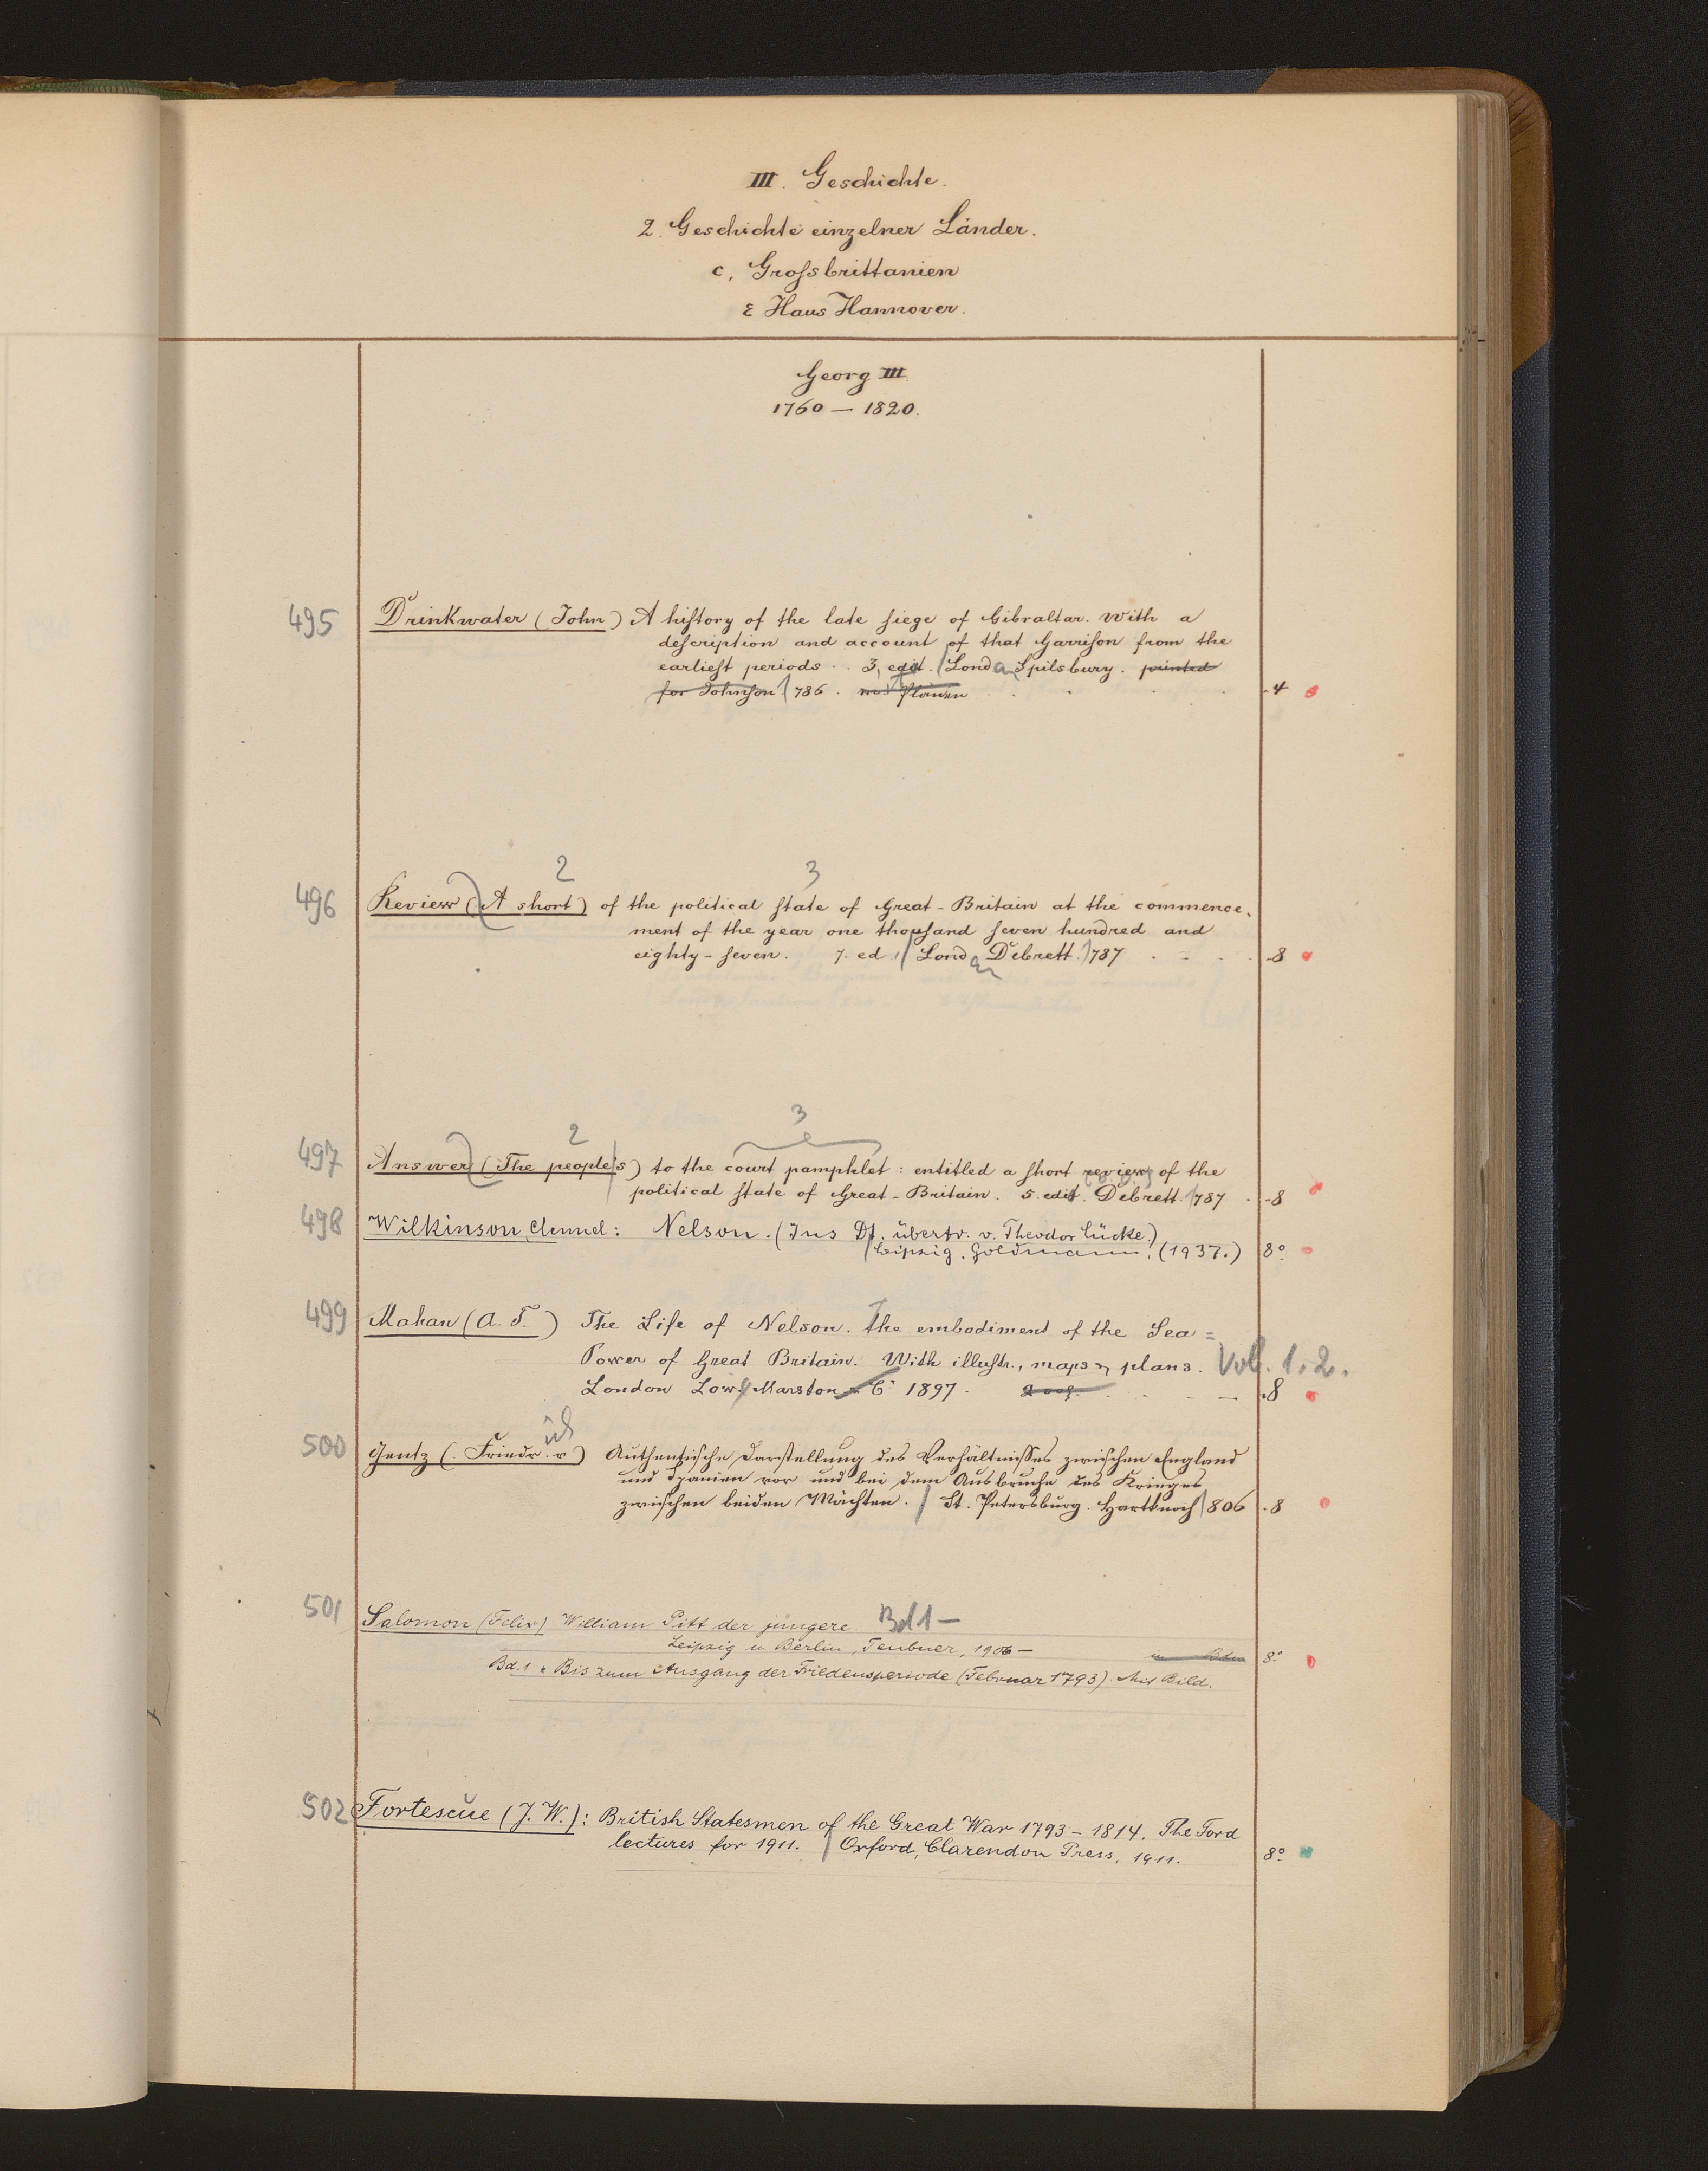 III. Geschichte.
2. Geschichte einzelner Länder.
c, Grossbrittanien
ε Haus Hannover.
Georg III
1760 — 1820.
495 Drinkwater (John) A history of the late siege of Gibraltar. With a
description and account of that Garrison from the
earliest periods. 3, edit. Lond. Spilsbury. printed
for Johnson 786. m. Plänen 4
2 3
496 Review (A short) of the political state of Great-Britain at the commence-
ment of the year one thousand seven hundred and
eighty-seven. 7. ed. Lond. Debrett. 787 8
2 3
497 Answer (The people's) to the court pamphlet: entitled a short review of the
political state of Great-Britain. 5. edit. Debrett. 787 8
498 Wilkinson, Clennel: Nelson. (Ins Dt. übertr. v. Theodor Lücke.)
Leipzig, Goldmann, (1937.) 8°
499 Mahan (A. T.) The Life of Nelson. The embodiment of the Sea=
Power of Great Britain. With illustr., maps & plans. Vol. 1.2.
London Low, Marston & C° 1897. 8
500 Gentz (Friedr. v) Authentische Darstellung des Verhältnisses zwischen England
und Spanien vor und bei dem Ausbruche des Krieges
zwischen beiden Mächten. St. Petersburg. Hartknoch 806 8
501 Salomon (Felix) William Pitt der jüngere Bd 1 —
Leipzig u Berlin, Teubner, 1906 — 8°
Bd. 1. Bis zum Ausgang der Friedensperiode (Februar 1793). Mit Bild.
502 Fortescue (J. W.): British Statesmen of the Great War 1793 – 1814. The Ford
lectures for 1911. Oxford, Clarendon Press, 1911. 8°